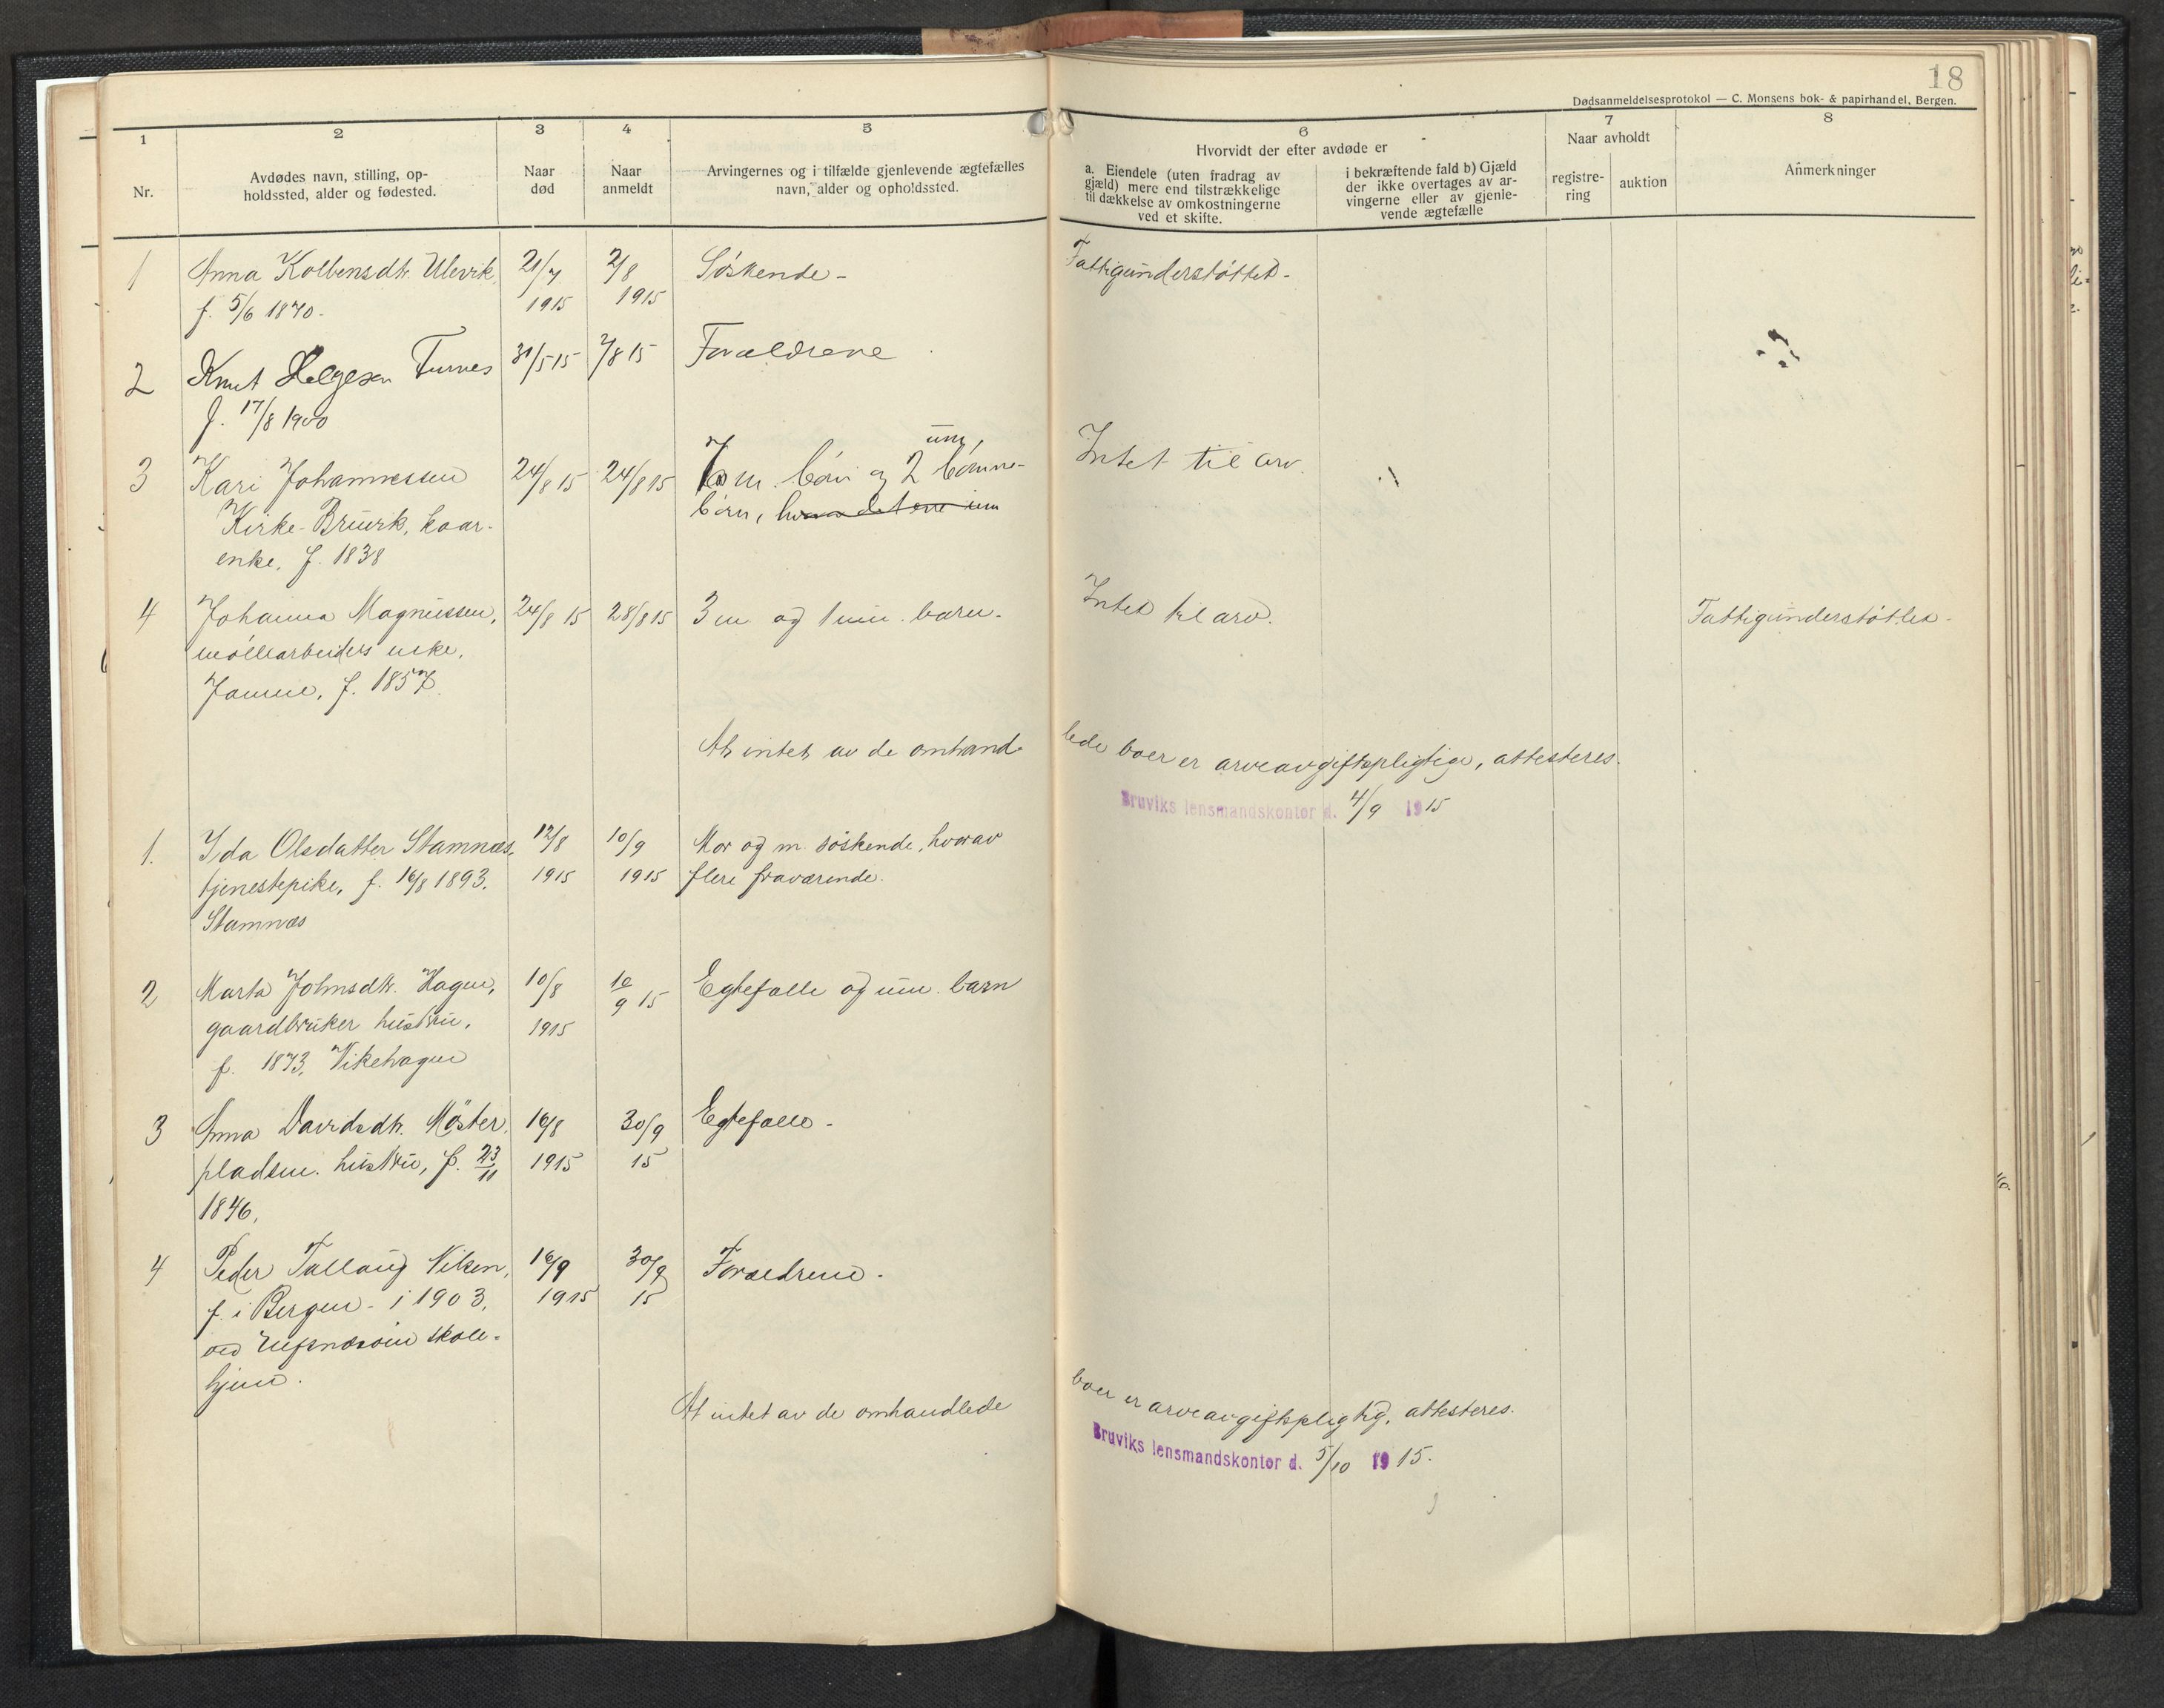 18
Dødsanmeldelsesprotokol — C. Monsens bok- & papirhandel, Bergen.
1 2 3 4 5 6 7 8
Nr.
Avdødes navn, stilling, op-
holdssted, alder og fødested.
Naar
død
Naar
anmeldt
Arvingernes og i tilfælde gjenlevende ægtefælles
navn, alder og opholdssted.
Hvorvidt der efter avdøde er
a. Eiendele (uten fradrag av
gjæld) mere end tilstrækkelige
til dækkelse av omkostningerne
ved et skifte.
i bekræftende fald b) Gjæld
der ikke overtages av ar-
vingerne eller av gjenle-
vende ægtefælle
Naar avholdt
registre-
ring
auktion
Anmerkninger
1 Anna Kolbensdtr. Ulevik, 21/7 2/8 Søskende - Fattigunderstøttet -
f. 5/6 1870. 1915 1915
2 Knut Helgesen Furnes 31/5 15 2/8 15 Forældrene
f. 17/8 1900
3 Kari Johannessen 24/8 15 24/8 15 m. børn og 2 um. børne- Intet til arv.
Kirke-Bruvik, kaar- børn,
enke, f. 1838
4 Johanna Magnussen, 24/8 15 28/8 15 3 m og 1 um. barn. Intet til arv. Fattigunderstøttet -
møllearbeiders enke,
f. 1857.
At intet av de omhand-
lede boer er arveavgiftspligtige, attesteres.
Bruviks lensmandskontor d. 4/9 1915
1. Ida Olsdatter Stamnæs, 12/8 10/9 Mor og m. søskende, hvorav
tjenestepike, f. 16/8 1893. 1915 1915 flere fraværende.
Stamnæs
2 Marta Johnsdtr. Hagen, 10/8 10/9 15 Egtefælle og um. barn
gaardbruker hustru, 1915
f. 1873, Vikehagen
3 Anna Davidsdtr. Møster, 16/8 30/9 Egtefælle -
pladsm. hustru, f. 23/11 1915 15
1846,
4 Peder Tallaug Nilsen, 16/9 30/9 Forældrene -
f. i Bergen - i 1903, 1915 15
ved skole-
hjem.
At intet av de omhandlede
boer er arveavgiftspligtig, attesteres.
Bruviks lensmandskontor d. 5/10 1915.